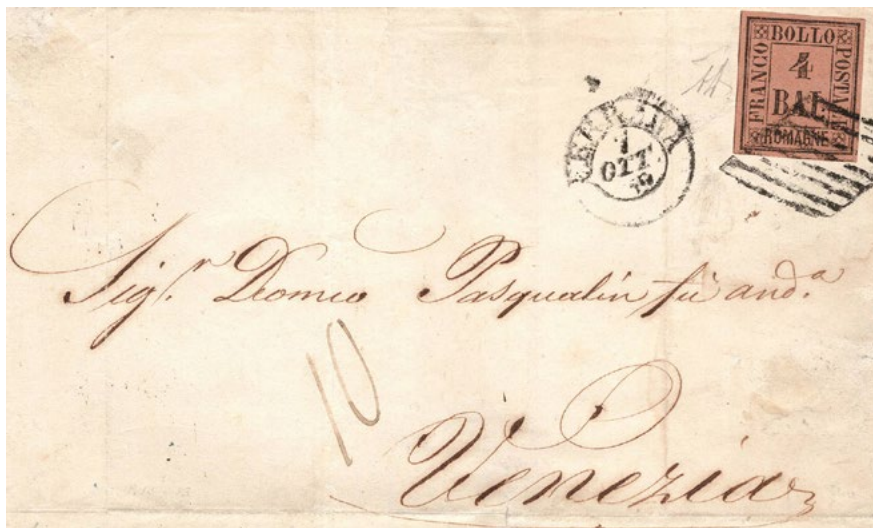 FRANCO BOLLO POSTALE
4
BAI
ROMAGNE
FERRARA
1
OTT
Sig.r Domco Pasqualin fù and.a
10
Venezia